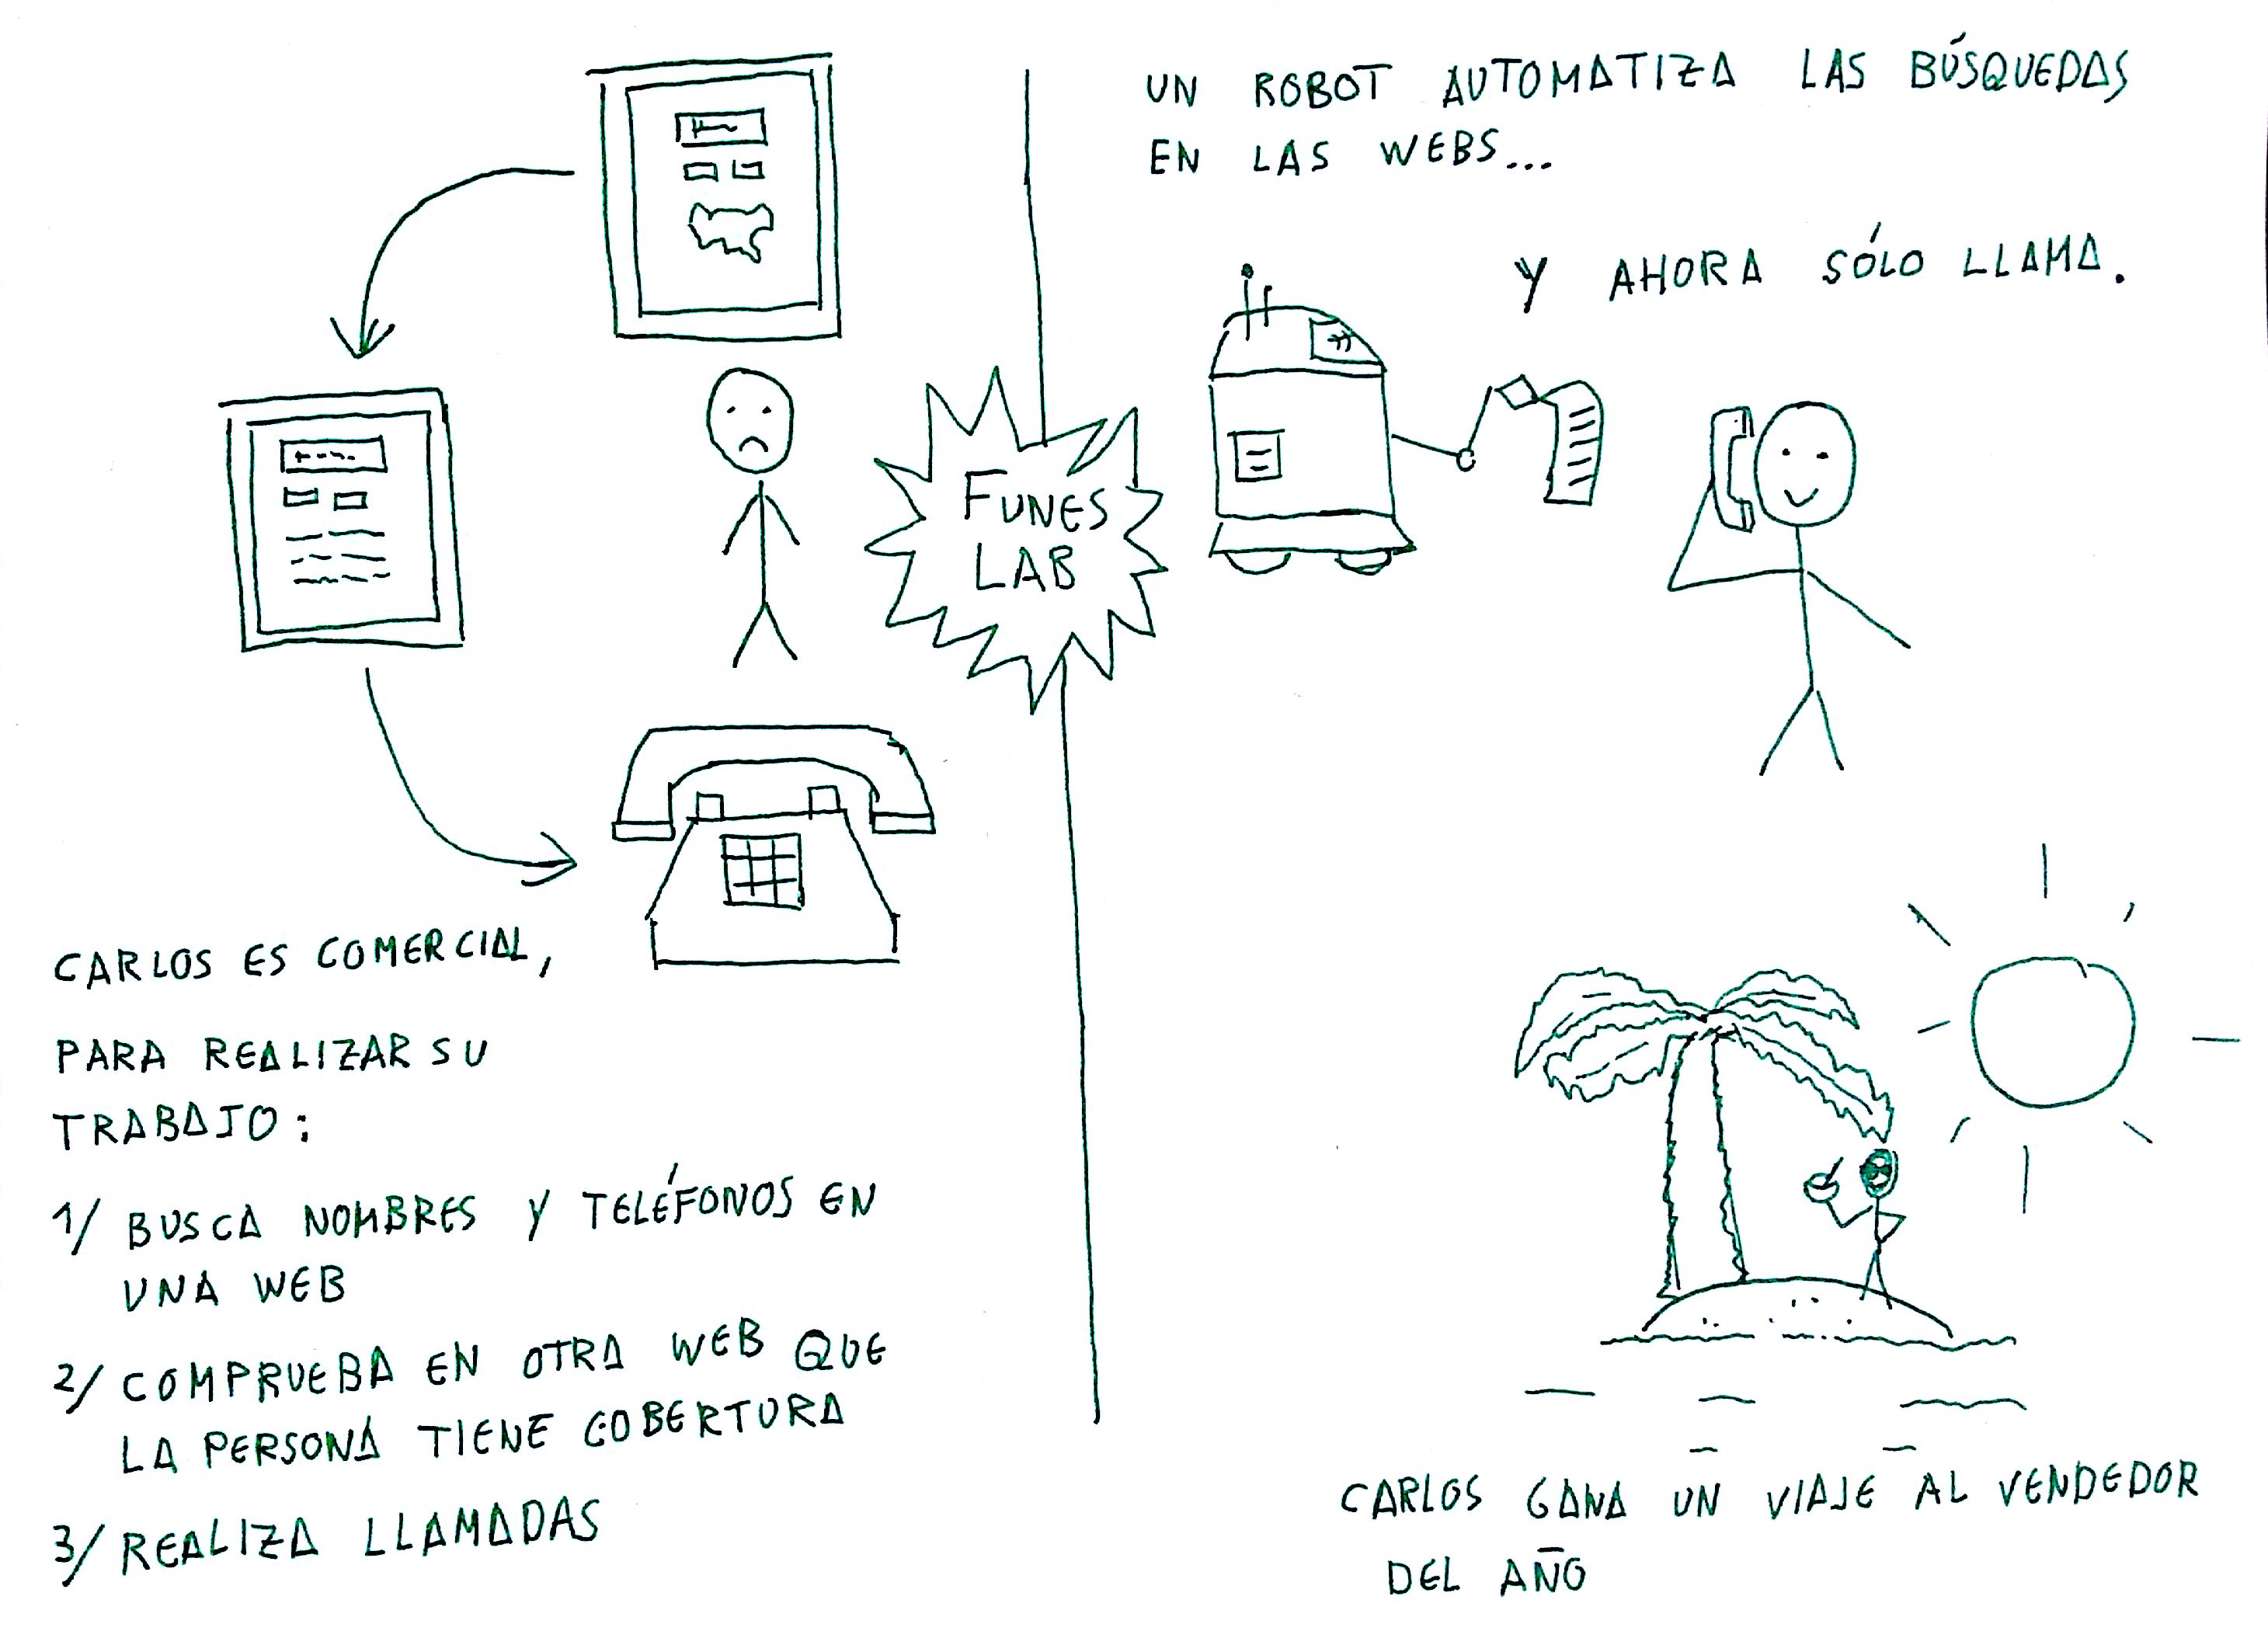 CARLOS ES COMERCIAL,
PARA REALIZAR SU
TRABAJO:
1/ BUSCA NOMBRES Y TELÉFONOS EN
UNA WEB
2/ COMPRUEBA EN OTRA WEB QUE
LA PERSONA TIENE COBERTURA
3/ REALIZA LLAMADAS
FUNES
LAB
UN ROBOT AUTOMATIZA LAS BÚSQUEDAS
EN LAS WEBS...
Y AHORA SÓLO LLAMA.
CARLOS GANA UN VIAJE AL VENDEDOR
DEL AÑO